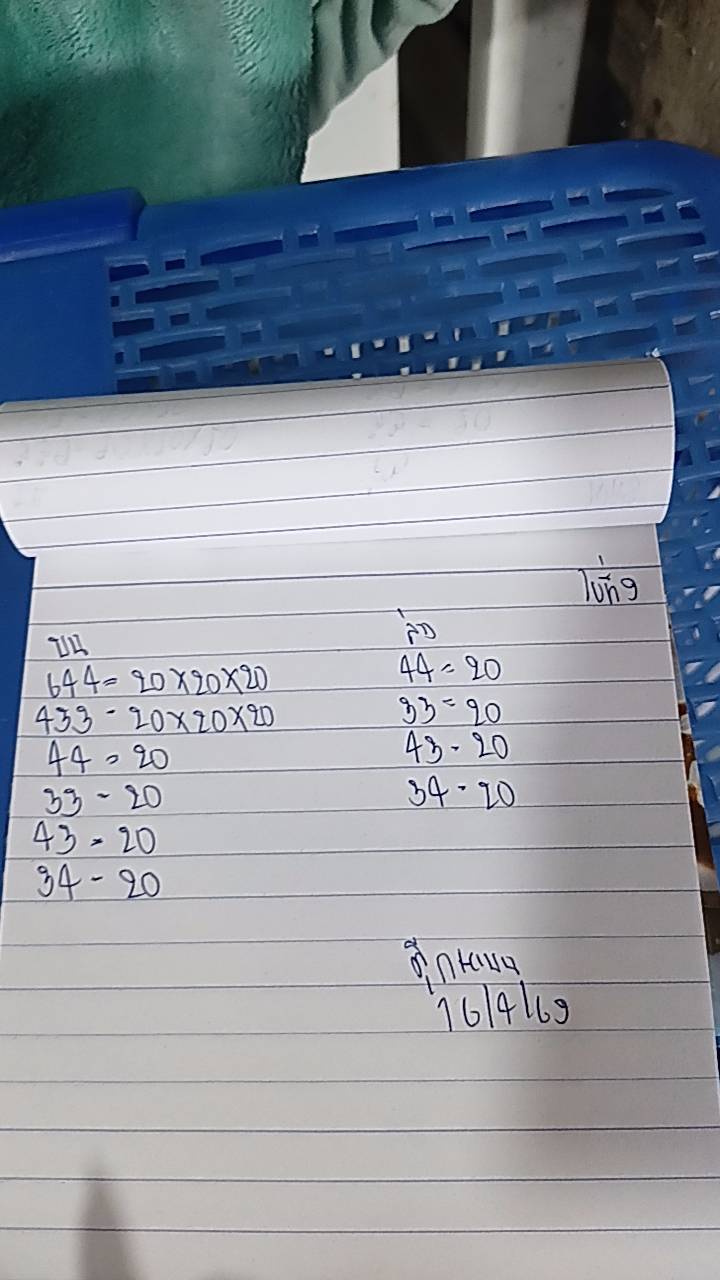 ใบที่9
บน
644= 20×20×20
433-20×20×20
44=20
33-20
43=20
34-20
ล่าง
44=20
33=20
43-20
34-20
16/4/69